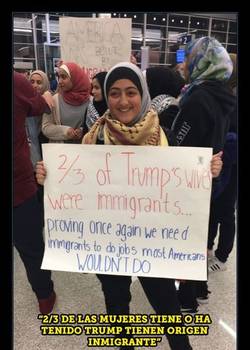 AMERICA
2/3 of Trump's wives
were immigrants...
proving once again we need
immigrants to do jobs most Americans
WOULDN'T DO
"2/3 DE LAS MUJERES TIENE O HA
TENIDO TRUMP TIENEN ORIGEN
INMIGRANTE"